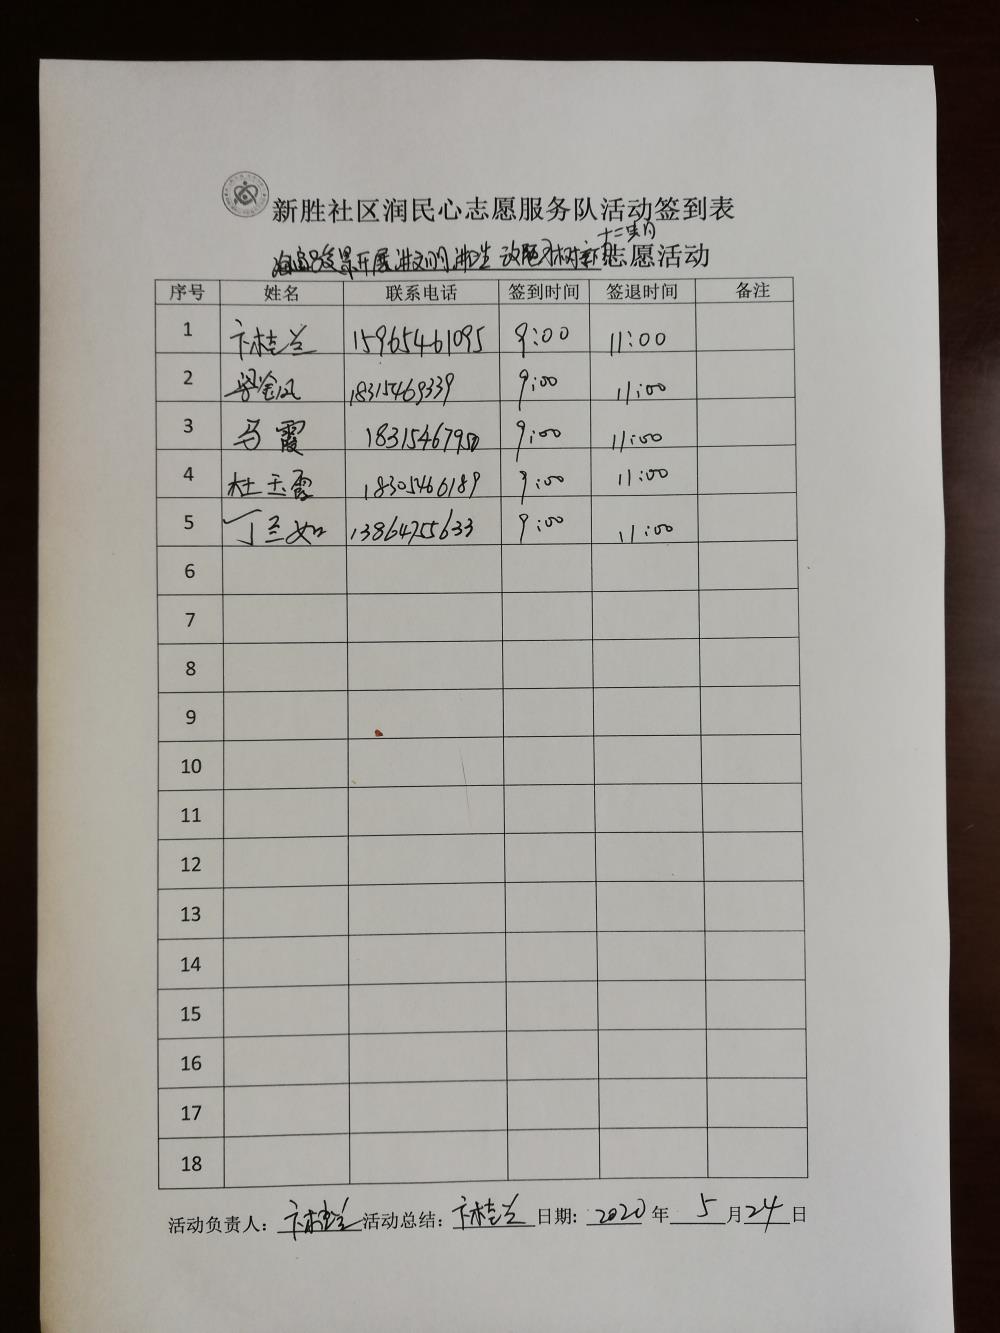 新胜社区润民心志愿服务队活动签到表
开展讲文明讲卫生 改陋习树新 志愿活动
序号 姓名 联系电话 签到时间 签退时间 备注
1 卞桂兰 15965461095 9:00 11:00
2 梁金凤 18315469339 9:00 11:00
3 马霞 18315467950 9:00 11:00
4 杜玉霞 18305466189 9:00 11:00
5 丁兰如 13864755633 9:00 11:00
6
7
8
9
10
11
12
13
14
15
16
17
18
活动负责人：卞桂兰 活动总结：卞桂兰 日期：2020年 5月24日